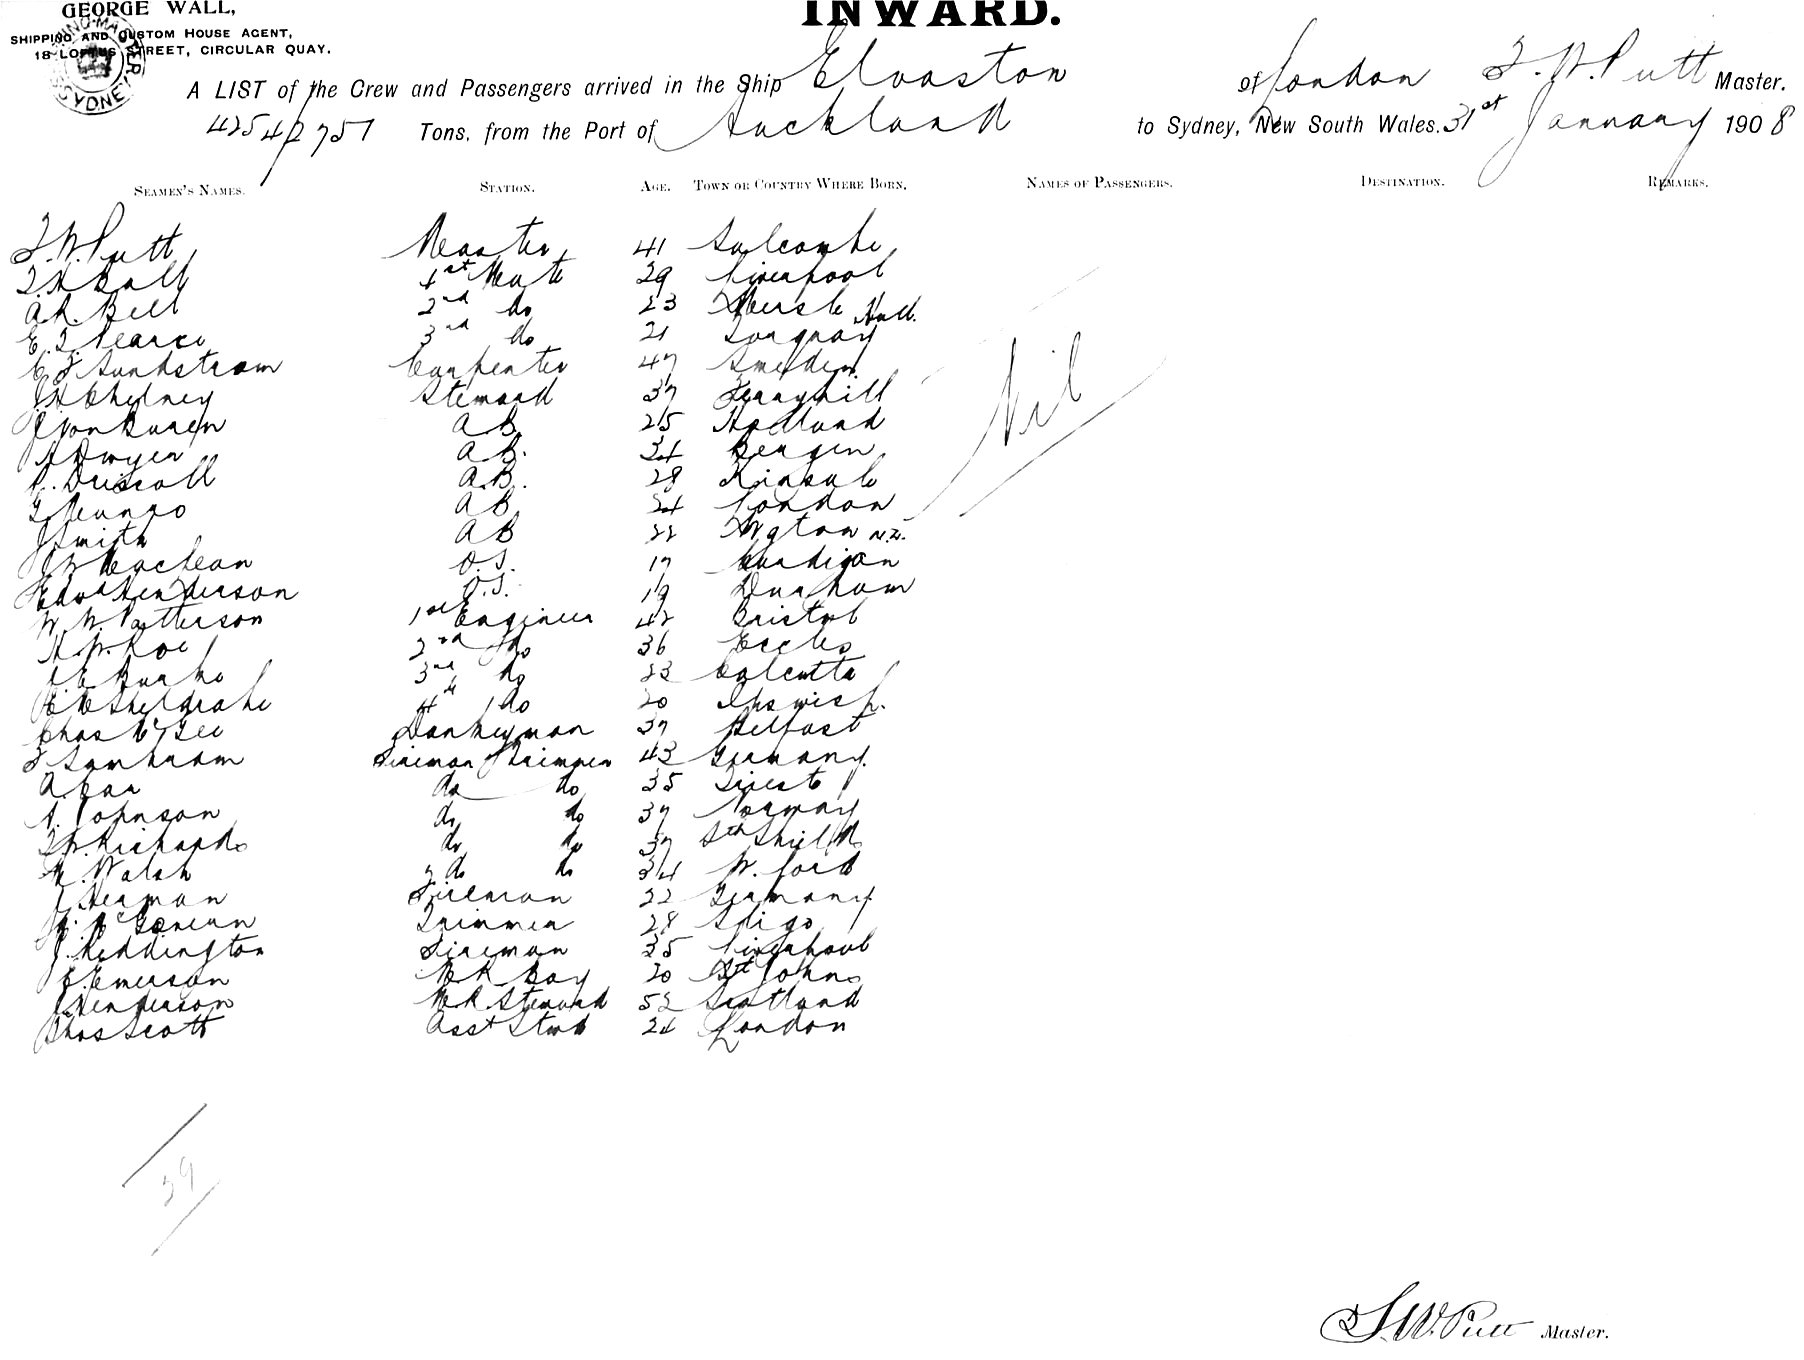 GEORGE WALL,
SHIPPING AND CUSTOM HOUSE AGENT,
18 LOFTUS STREET, CIRCULAR QUAY.
SYDNEY
INWARD.
A LIST of the Crew and Passengers arrived in the Ship Elvaston of London F. W. Putt Master.
4254/2757 Tons, from the Port of Auckland to Sydney, New South Wales. 31st January 1908
SEAMEN'S NAMES. STATION. AGE. TOWN OR COUNTRY WHERE BORN, NAMES OF PASSENGERS. DESTINATION. REMARKS.
F. W. Putt Master 41 Salcombe
Ball 1st Mate 29 Liverpool
A. R. Bell 2nd do 23 Hull.
E. F. Pearce 3rd do 21 Torquay
C F Sundstrom Carpenter 47 Sweden
Steward 37 Ferryhill
J Von Buren A B. 25 Holland
Dwyer A B. 34 Bergen
Driscoll A.B. 28 Kinsale
Munro A B 24 London
J Smith A B 22 Wgton N.Z.
Maclean O.S. 17 Cardigan
Edwd Henderson O.S. 19 Durham
W. W. Patterson 1st Engineer 42 Bristol
H. W. Roe 2nd do 36 Eccles
Burke 3rd do 23 Calcutta
Sheldrake 4th do 20 Ipswich.
Chas McGee Donkeyman 37 Belfast
Fireman & Trimmer 43 Germany.
A. do do 35 Triest
Johnson do do 37 Norway
Richards do do 37 Sth Shields
M. Walsh do do 34 W. ford
J Herman Fireman 22 Germany
Trimmer 28 Sligo
J. Reddington Fireman 35 Liverpool
E. Emerson M R Boy 20 St Johns
J Henderson M R Steward 52 Scotland
Chas Scott Asst Stwd 24 London
Nil
F. W. Putt Master.